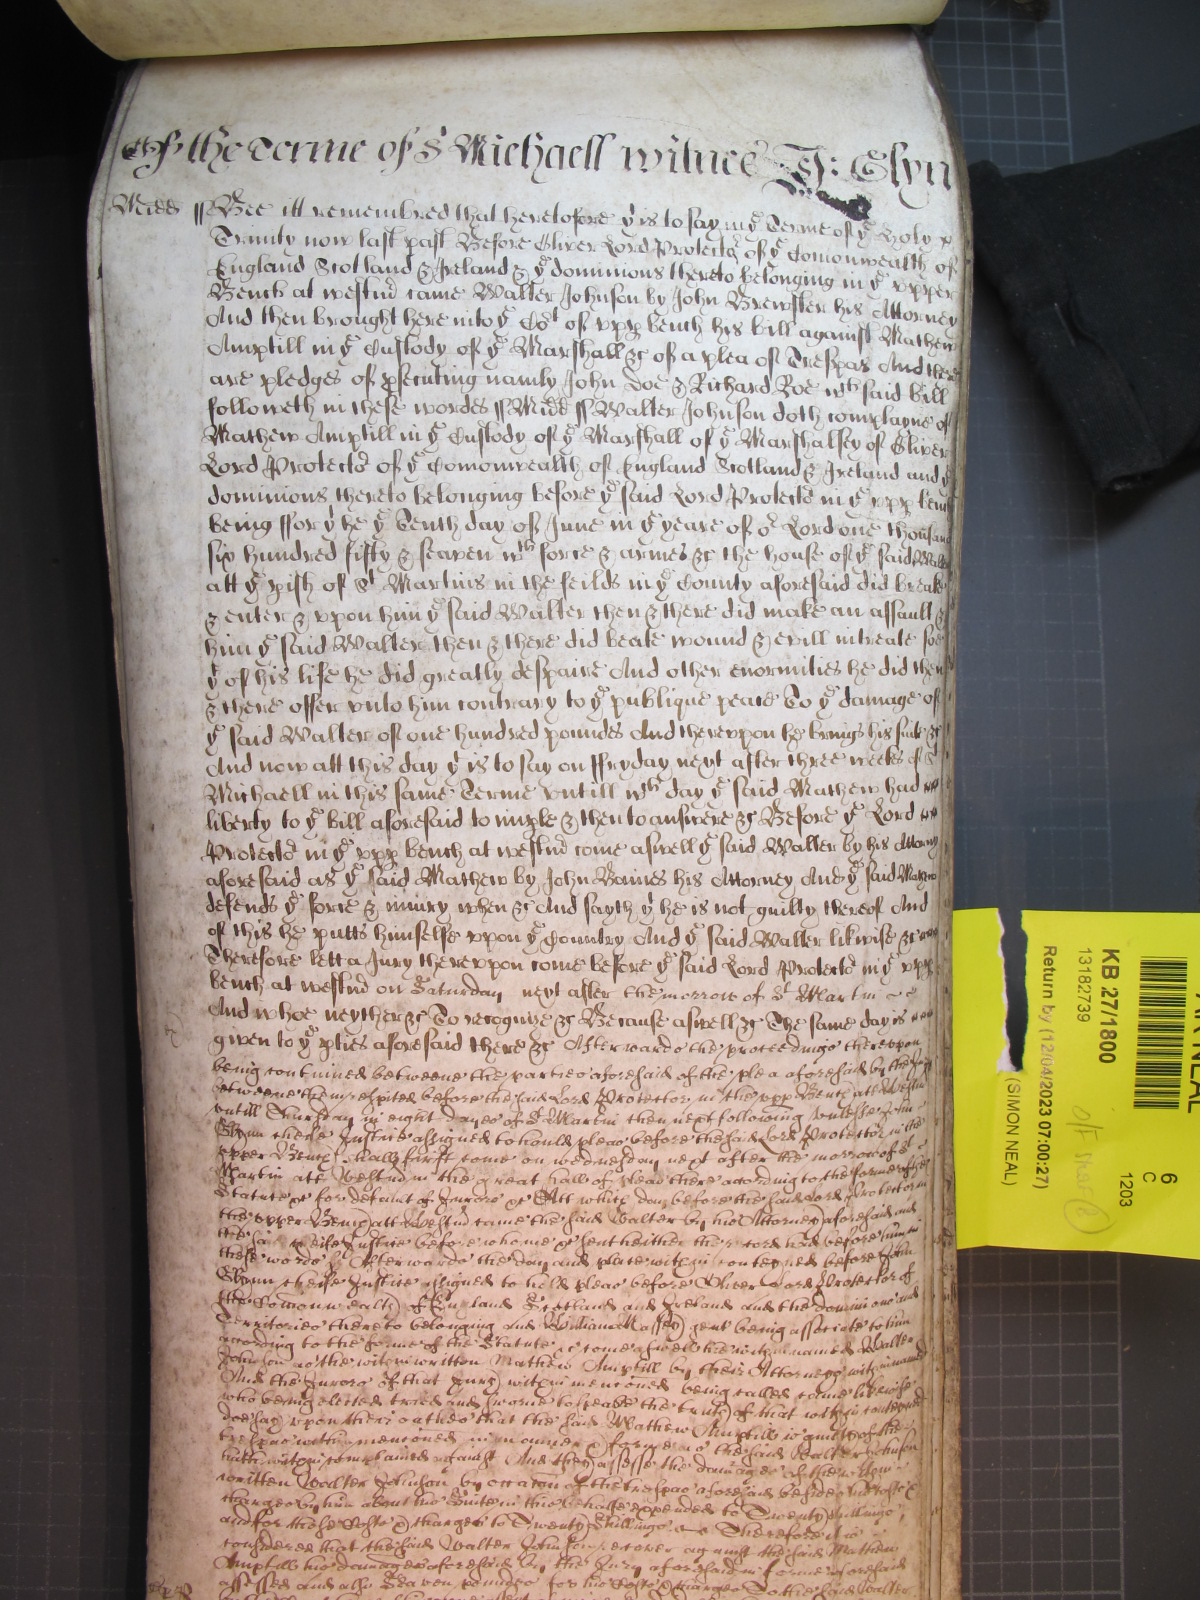 Of the Terme of St Michaell witnes J: Glyn
Midds ss Bee itt remembred that heretofore yt is to say in ye Terme of ye Holy
Trinity now last past Before Oliver Lord Protector of ye Comonwealth of
England Scotland & Ireland & ye dominions thereto belonging in ye upper
Bench at westmr came Walter Johnson by John Brewster his Attorney
And then brought here into ye Cort of upp bench his bill against Mathew
Amptill in ye Custody of ye Marshall &c of a plea of Trespas And there
are pledges of psecuting namly John Doe & Richard Roe wch said bill
followeth in these wordes ss Midd ss Walter Johnson doth complayne of
Mathew Amptill in ye Custody of ye Marshall of ye Marshalsey of Oliver
Lord Protector of ye Comonwealth of England Scotland & Ireland and ye
dominions thereto belonging before ye said Lord Protector in ye upp bench
being ffor yt he ye Tenth day of June in ye yeare of or Lord one thousand
six hundred fifty & seaven wth force & armes &c the house of ye said Walter
att ye pish of St Martins in the feilds in ye County aforesaid did breake
& enter & upon him ye said Walter then & there did make an assault &
him ye said Walter then & there did beate wound & evill intreate soe
yt of his life he did greatly despaire And other enormities he did then
& there offer unto him contrary to ye publique peace To ye damage of
ye said Walter of one hundred poundes And thereupon he brings his suite &c
And now att this day yt is to say on ffryday next after three weekes of St
Michaell in this same Terme untill wch day ye said Mathew had
liberty to ye bill aforesaid to imple & then to answere &c Before ye Lord
Protector in ye upp bench at westmr come aswell ye said Walter by his Attorny
aforesaid as ye said Mathew by John Baines his Attorney And ye said Mathew
defends ye force & iniury when &c And sayth yt he is not guilty thereof And
of this he putts himselfe upon ye Country And ye said Walter likwise &c
Therefore lett a Jury thereupon come before ye said Lord Protector in ye upp
bench at westmr on Saturday next after the morrow of St Martin
And whoe neyther &c To recognize &c Because aswell &c The same day is
given to ye pties aforesaid there &c Afterwards the proceedings thereupon
being continued betweene the parties aforesaid of the plea aforesaid by the Jury
betweene them respited before the said Lord Protector in the upp Bench att Westmr
untill Thursday in eight dayes of St Martin then next following unlesse John
Glynn cheife Justice assigned to hould pleas before the said Lord Protector in the
upper Bench shall first come on wednesday next after the morrow of St
Martin att Westmr in the great hall of pleas there according to the forme of the
Statute &c for default of Jurors &c Att which day before the said Lord Protector in
the upper Bench att Westmr came the said Walter by his Attorney aforesaid and
the said cheife Justice before whome &c sent hether the record had before him in
these words ss Afterwards the day and place within conteyned before John
Glynn cheife Justice assigned to hold pleas before Oliver Lord Protector of
the Comonwealth of England Scotland and Ireland and the dominions and
Territories thereto belonging and William Massey gent being associate to him
according to the forme of the Statute &c come aswell the within named Walter
Johnson as the within written Mathew Amptill by their Attorneys within named
And the Jurors of that Jury within mencioned being called come likewise
who being elected tryed and sworne to speake the truth of that within conteyned
doe say upon their oathes that the said Mathew Amptill is guilty of the
trespas within mencioned in manner & forme as the said Walter Johnson
hath within complained against And they assesse the damages of the within
written Walter Johnson by occasion of the trespas aforesaid besides his costs &
charges by him about his Suite in this behalfe expended to Twenty shillings
and for those Costs & charges to Twenty Shillings Therefore it is
considered that the said Walter Johnson recover against the said Mathew
Amptill his damages aforesaid by the Jury aforesaid in forme aforesaid
assessed and also Seaven poundes for his Costs & charges To the said Walter
KB 27/1800
13182739
Return by (12/04/2023 07:00:27)
(SIMON NEAL)
6
C
1203